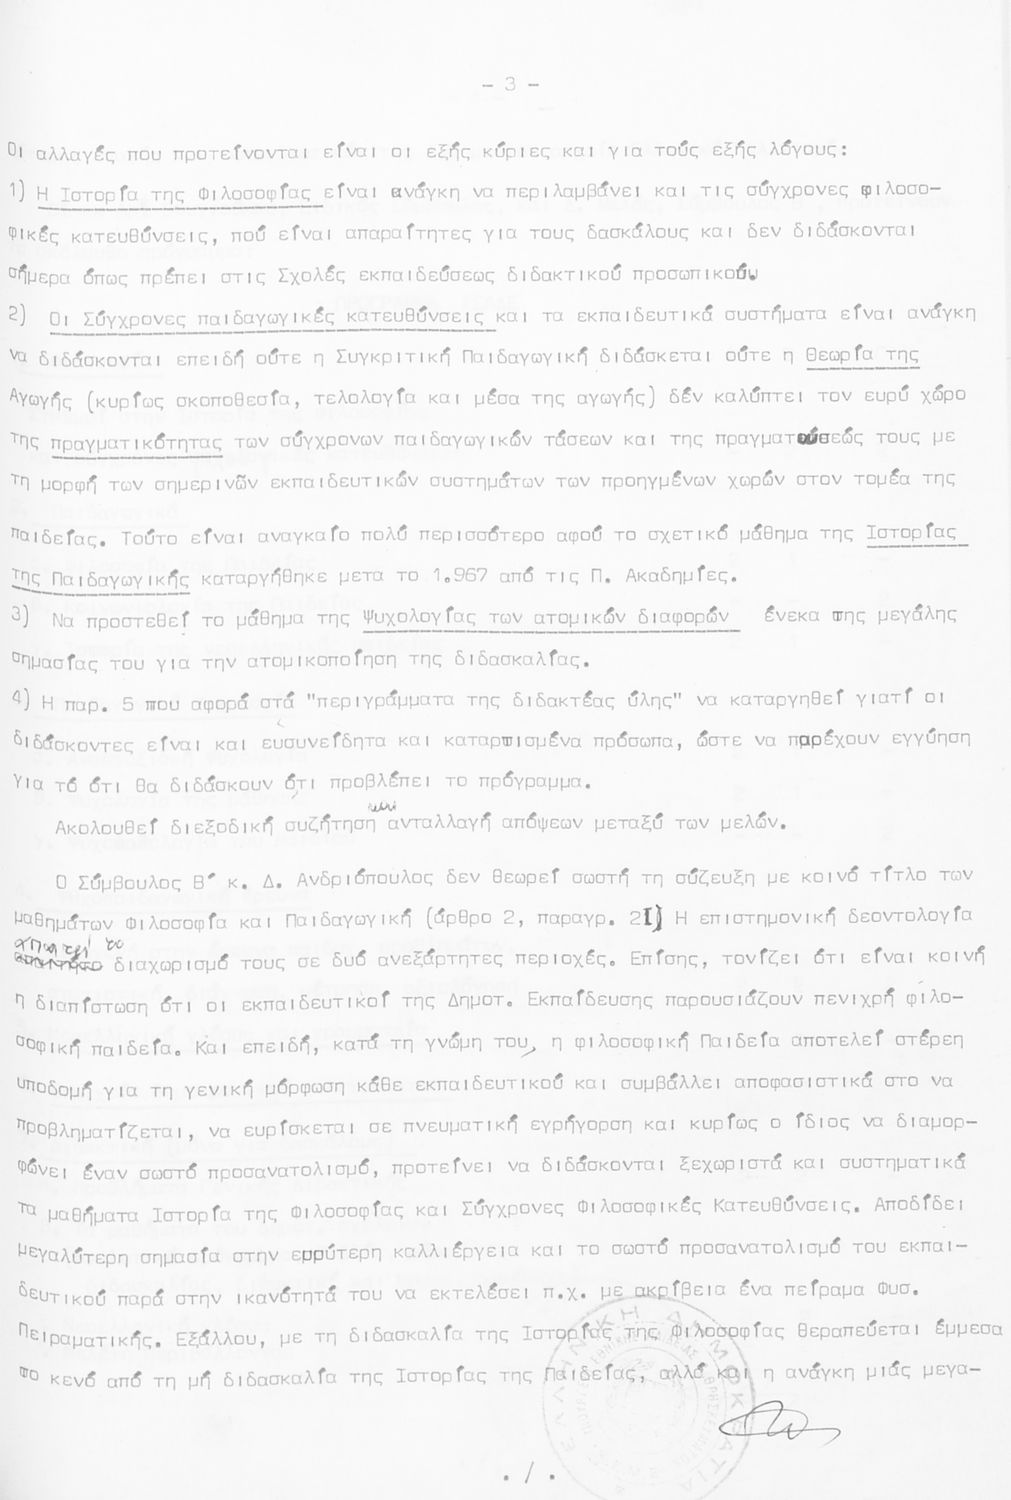 - 3 -
Οι αλλαγές που προτείνονται είναι οι εξής κύριες και για τούς εξής λόγους:
1) Η Ιστορία της Φιλοσοφίας είναι ανάγκη να περιλαμβάνει και τις σύγχρονες φιλοσο-
φικές κατευθύνσεις, πού είναι απαραίτητες για τους δασκάλους και δεν διδάσκονται
σήμερα όπως πρέπει στις Σχολές εκπαιδεύσεως διδακτικού προσωπικού.
2) Οι Σύγχρονες παιδαγωγικές κατευθύνσεις και τα εκπαιδευτικά συστήματα είναι ανάγκη
να διδάσκονται επειδή ούτε η Συγκριτική Παιδαγωγική διδάσκεται ούτε η Θεωρία της
Αγωγής (κυρίως σκοποθεσία, τελολογία και μέσα της αγωγής) δέν καλύπτει τον ευρύ χώρο
της πραγματικότητας των σύγχρονων παιδαγωγικών τάσεων και της πραγματώσεώς τους με
τη μορφή των σημερινών εκπαιδευτικών συστημάτων των προηγμένων χωρών στον τομέα της
παιδείας. Τούτο είναι αναγκαίο πολύ περισσότερο αφού το σχετικό μάθημα της Ιστορίας
της Παιδαγωγικής καταργήθηκε μετα το 1.967 από τις Π. Ακαδημίες.
3) Να προστεθεί το μάθημα της Ψυχολογίας των ατομικών διαφορών ένεκα της μεγάλης
σημασίας του για την ατομικοποίηση της διδασκαλίας.
4) Η παρ. 5 που αφορά στά "περιγράμματα της διδακτέας ύλης" να καταργηθεί γιατί οι
διδάσκοντες είναι και ευσυνείδητα και καταρτισμένα πρόσωπα, ώστε να παρέχουν εγγύηση
για τό ότι θα διδάσκουν ό,τι προβλέπει το πρόγραμμα.
Ακολουθεί διεξοδική συζήτηση και ανταλλαγή απόψεων μεταξύ των μελών.
Ο Σύμβουλος Β΄ κ. Δ. Ανδριόπουλος δεν θεωρεί σωστή τη σύζευξη με κοινό τίτλο των
μαθημάτων Φιλοσοφία και Παιδαγωγική (άρθρο 2, παραγρ. 21) Η επιστημονική δεοντολογία
απαιτεί το διαχωρισμό τους σε δυό ανεξάρτητες περιοχές. Επίσης, τονίζει ότι είναι κοινή
η διαπίστωση ότι οι εκπαιδευτικοί της Δημοτ. Εκπαίδευσης παρουσιάζουν πενιχρή φιλο-
σοφική παιδεία. Και επειδή, κατά τη γνώμη του, η φιλοσοφική Παιδεία αποτελεί στέρεη
υποδομή για τη γενική μόρφωση κάθε εκπαιδευτικού και συμβάλλει αποφασιστικά στο να
προβληματίζεται, να ευρίσκεται σε πνευματική εγρήγορση και κυρίως ο ίδιος να διαμορ-
φώνει έναν σωστό προσανατολισμό, προτείνει να διδάσκονται ξεχωριστά και συστηματικά
τα μαθήματα Ιστορία της Φιλοσοφίας και Σύγχρονες Φιλοσοφικές Κατευθύνσεις. Αποδίδει
μεγαλύτερη σημασία στην ευρύτερη καλλιέργεια και το σωστό προσανατολισμό του εκπαι-
δευτικού παρά στην ικανότητά του να εκτελέσει π.χ. με ακρίβεια ένα πείραμα Φυσ.
Πειραματικής. Εξάλλου, με τη διδασκαλία της Ιστορίας της Φιλοσοφίας θεραπεύεται έμμεσα
το κενό από τη μή διδασκαλία της Ιστορίας της Παιδείας, αλλά και η ανάγκη μιάς μεγα-
ΕΛΛΗΝΙΚΗ ΔΗΜΟΚΡΑΤΙΑ
. / .